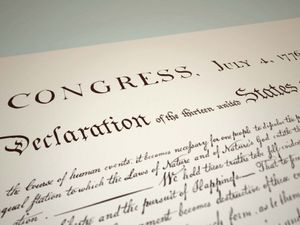 CONGRESS, JULY 4, 1776
Declaration of the thirteen united States
the Course of human events, it becomes necessary for one people to dissolve the
equal station to which the Laws of Nature and of Nature's God
We hold these truths to be self-evident
and the pursuit of Happiness — That
becomes destructive of these